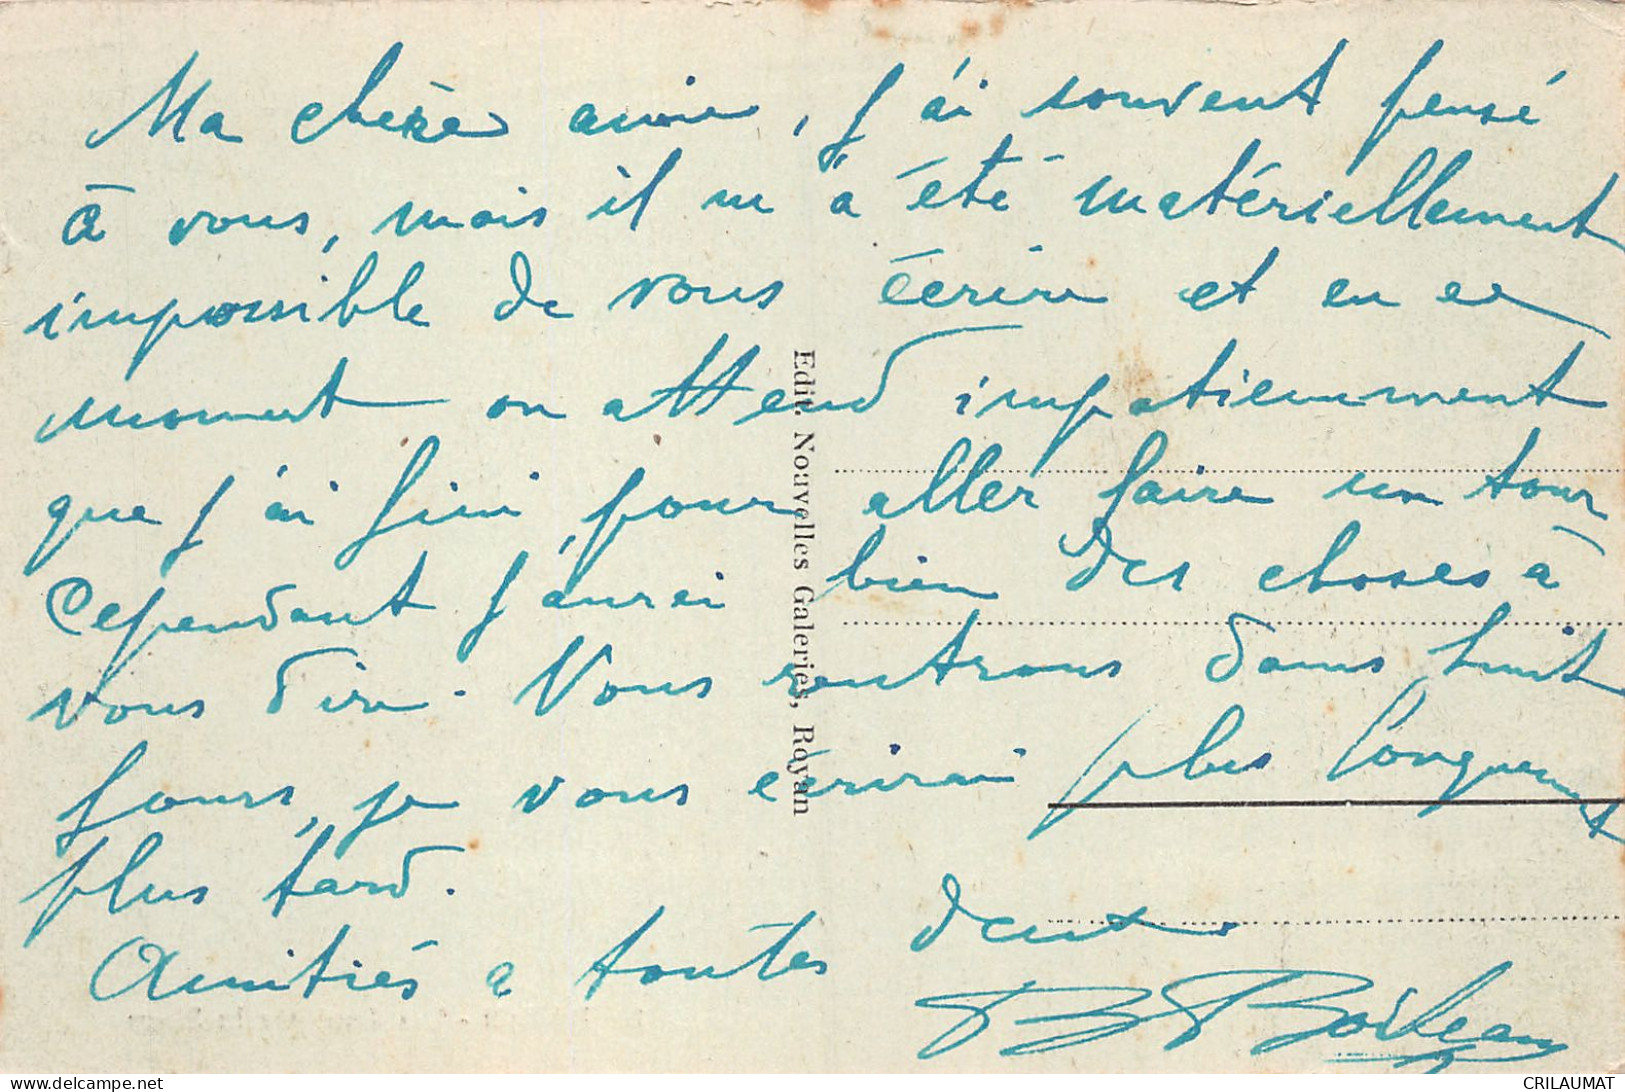 Ma chère amie, j'ai souvent pensé
à vous, mais il m'a été matériellement
impossible de vous écrire et en ce
moment on attend impatiemment
que j'ai fini, pour aller faire un tour
Cependant j'aurai bien des choses à
vous dire. Nous rentrons dans huit
jours, je vous écrirai plus longuement
plus tard.
Amitiés à toutes deux.
B Boileau
Edit. Nouvelles Galeries, Royan
delcampe.net
CRILAUMAT